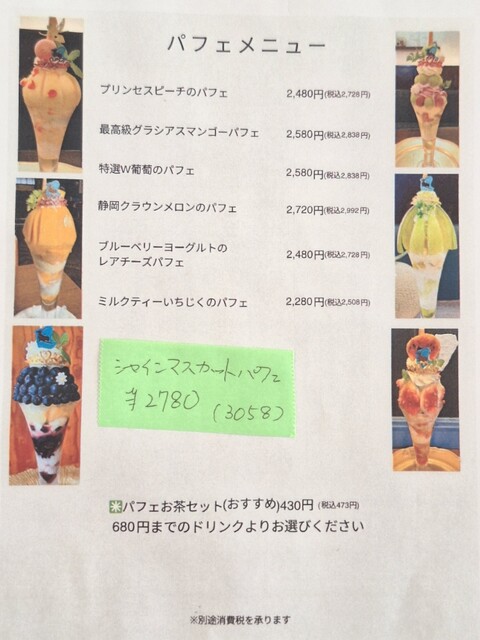 パフェメニュー
プリンセスピーチのパフェ 2,480円(税込2,728円)
最高級グラシアスマンゴーパフェ 2,580円(税込2,838円)
特選W葡萄のパフェ 2,580円(税込2,838円)
静岡クラウンメロンのパフェ 2,720円(税込2,992円)
ブルーベリーヨーグルトの
レアチーズパフェ 2,480円(税込2,728円)
ミルクティーいちじくのパフェ 2,280円(税込2,508円)
シャインマスカットパフェ
¥2780 (3058)
※パフェお茶セット(おすすめ)430円 (税込473円)
680円までのドリンクよりお選びください
※別途消費税を承ります